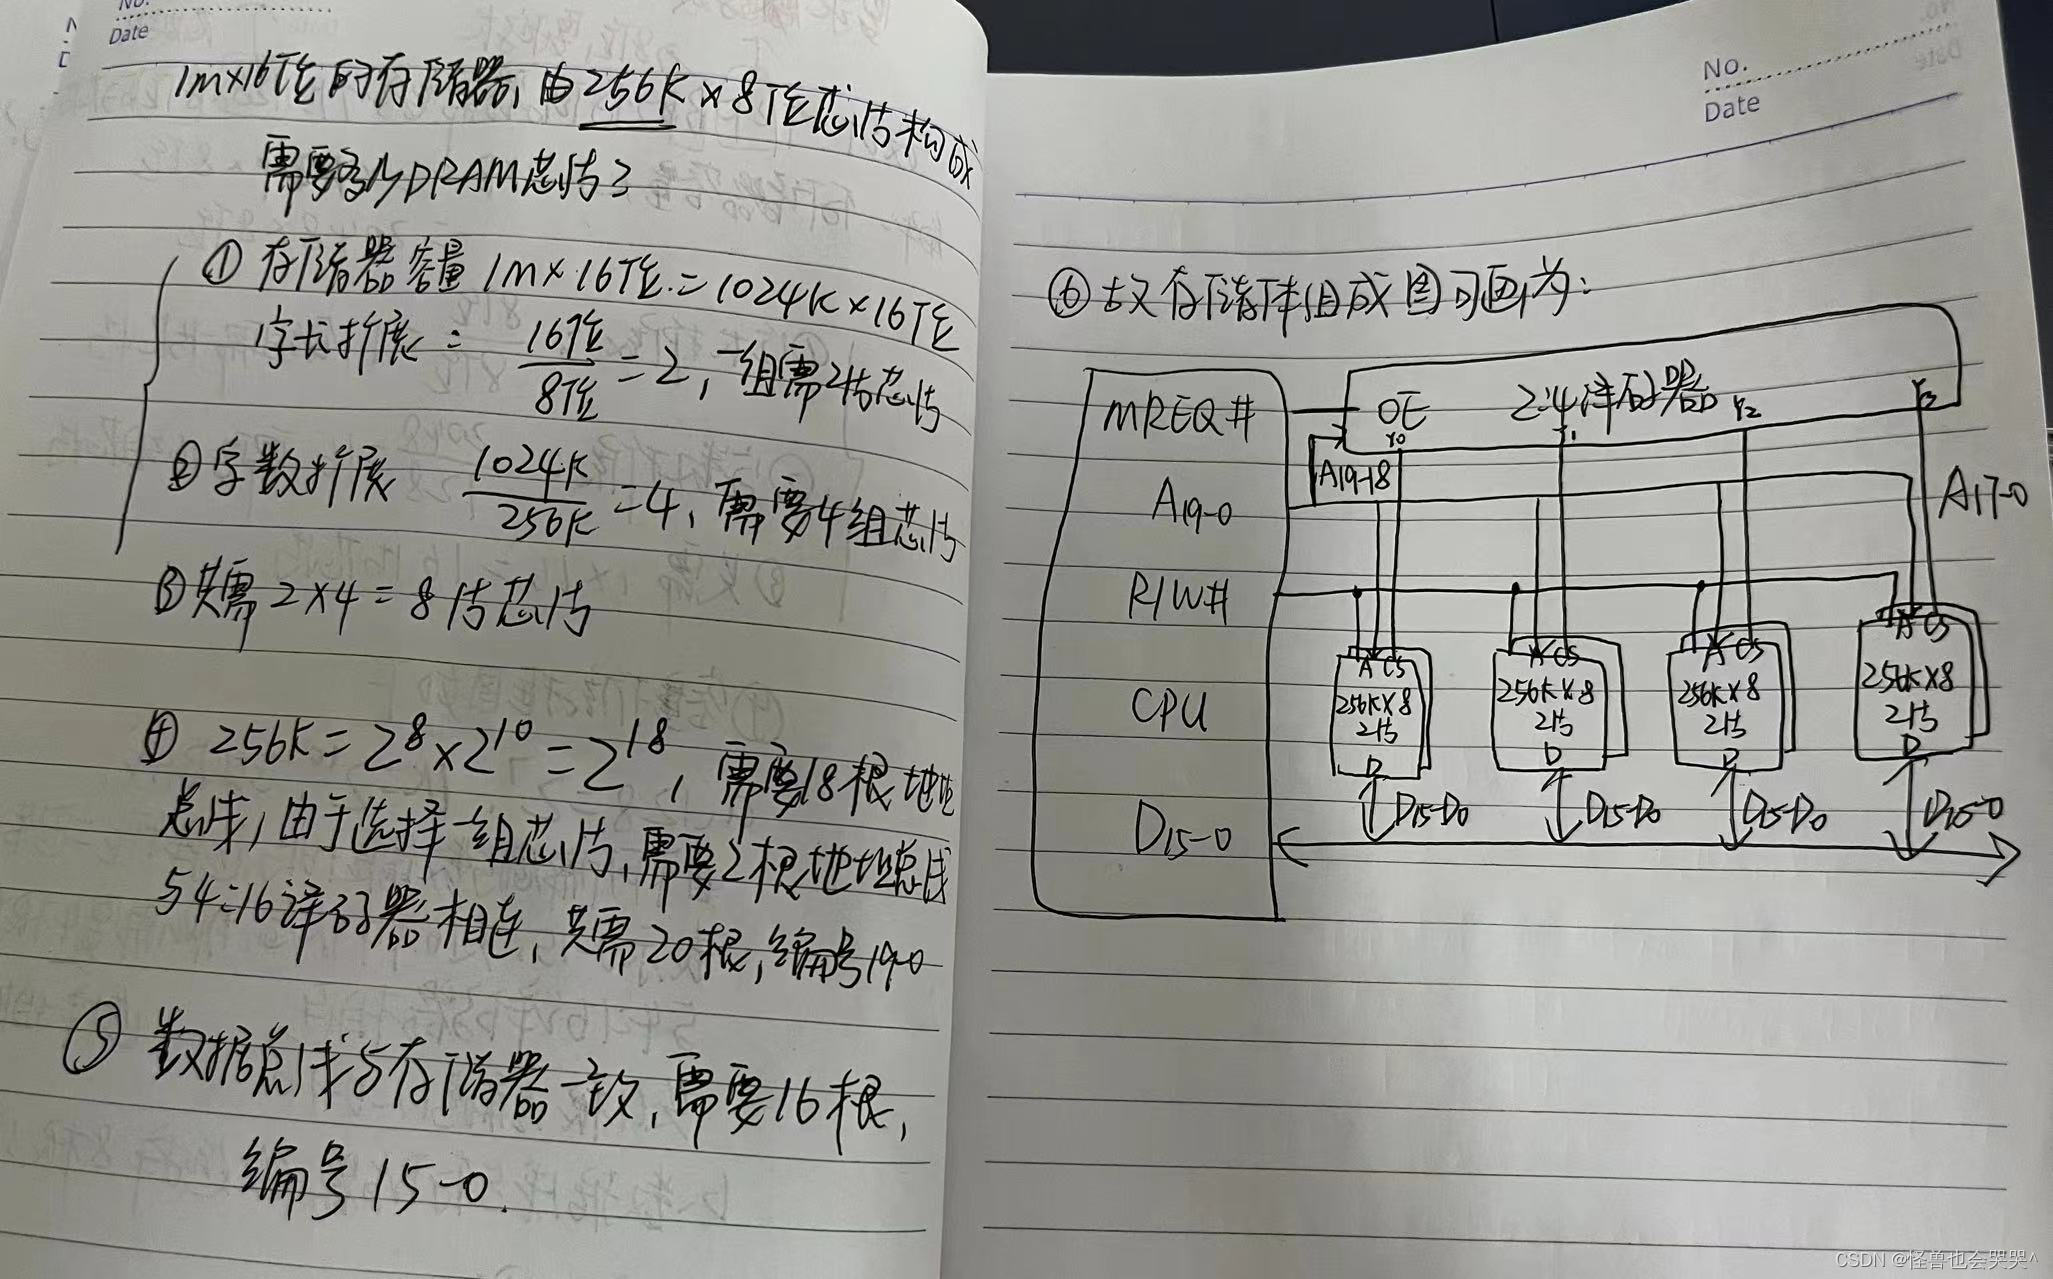 No.
Date
1m×16位的存储器,由256K×8位芯片构成
需要多少DRAM芯片?
① 存储器容量 1m×16位=1024K×16位
字长扩展: 16位/8位=2,一组需2片芯片
②字数扩展 1024K/256K=4,需要4组芯片
③共需2×4=8片芯片
④ 256K=2^8×2^10=2^18,需要18根地址
总线,由于选择一组芯片,需要2根地址总线
与4:16译码器相连,共需20根,编号19-0
⑤ 数据总线与存储器一致,需要16根,
编号15-0.
No.
Date
⑥ 故存储体组成图可画为:
MREQ# OE 2:4译码器
Y0 Y1 Y2 Y3
A19-18
A19-0 A17-0
R/W#
A CS A CS A CS A CS
CPU 256K×8 256K×8 256K×8 256K×8
2片 2片 2片 2片
D D D D
D15-0 D15-D0 D15-D0 D15-D0 D15-0
CSDN @怪兽也会哭哭^